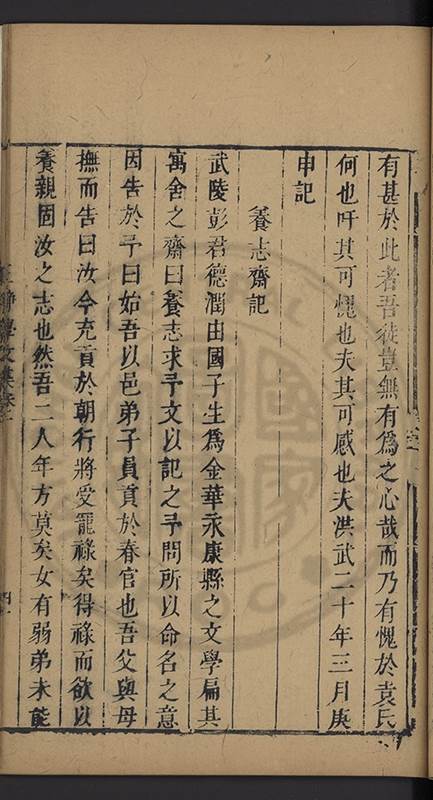 有甚於此者吾徒豈無有爲之心哉而乃有愧於袁氏
何也吁其可愧也夫其可感也夫洪武二十年三月庚
申記
養志齋記
武陵彭君德潤由國子生爲金華永康縣之文學扁其
寓舍之齋曰養志求予文以記之予問所以命名之意
因告於予曰始吾以邑弟子員貢於春官也吾父與母
撫而告曰汝今充貢於朝行將受寵祿矣得祿而欲以
養親固汝之志也然吾二人年方莫矣女有弱弟未能